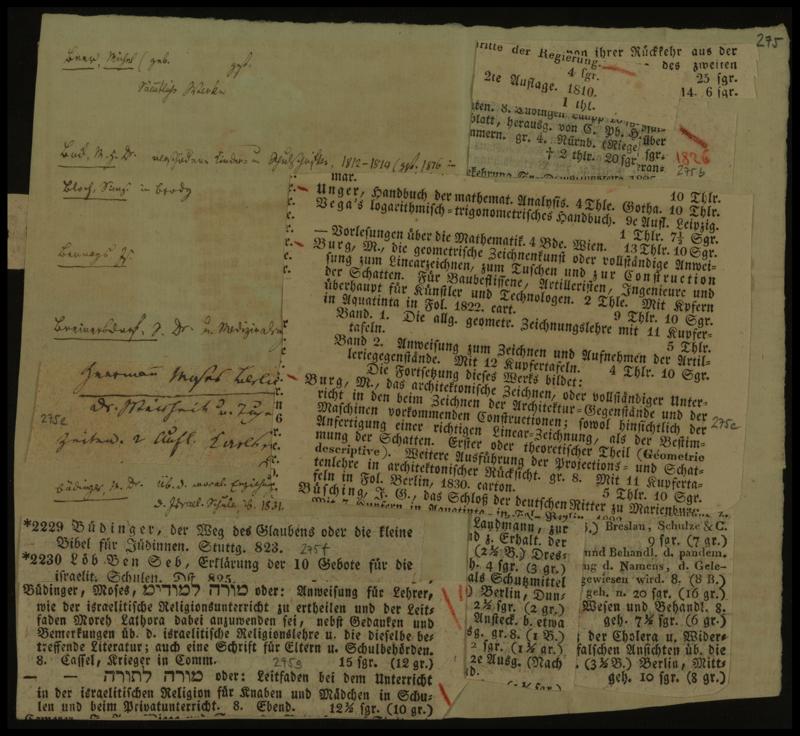 275
ihrer Rückkehr aus der
ritte der Regierung.
des zweiten
4 sgr.
25 sgr.
2te Auflage. 1810.
14. 6 sgr.
1 thl.
blatt, herausg. von C. Ph. H.
über
mmern. gr. 4. Nürnb. (Riegel
sgr.
† 2 thlr. 20 sgr.
1826
275b
mar.
Beer, Michel (geb. gest.
Sämtliche Werke
1812–1814 (gest. 1816 in
Bloch, Sims. in Brody
Unger, Handbuch der mathemat. Analysis. 4 Thle. Gotha. 10 Thlr.
10 Thlr.
Vega's logarithmisch-trigonometrisches Handbuch. 9e Aufl. Leipzig.
1 Thlr. 7½ Sgr.
— Vorlesungen über die Mathematik. 4 Bde. Wien. 13 Thlr. 10 Sgr.
Burg, M., die geometrische Zeichnenkunst oder vollständige Anwei-
sung zum Linearzeichnen, zum Tuschen und zur Construction
der Schatten. Für Baubeflissene, Artilleristen, Ingenieure und
überhaupt für Künstler und Technologen. 2 Thle. Mit Kpfern
in Aquatinta in Fol. 1822. cart. 9 Thlr. 10 Sgr.
Band. 1. Die allg. geometr. Zeichnungslehre mit 11 Kupfer-
tafeln. 5 Thlr.
Band 2. Anweisung zum Zeichnen und Aufnehmen der Artil-
leriegegenstände. Mit 12 Kupfertafeln. 4 Thlr. 10 Sgr.
Die Fortsetzung dieses Werks bildet:
Burg, M., das architektonische Zeichnen, oder vollständiger Unter-
richt in den beim Zeichnen der Architektur-Gegenstände und der
Maschinen vorkommenden Constructionen; sowol hinsichtlich der
Anfertigung einer richtigen Linear-Zeichnung, als der Bestim-
mung der Schatten. Erster oder theoretischer Theil (Géometrie
descriptive). Weitere Ausführung der Projections- und Schat-
tenlehre in architektonischer Rücksicht. gr. 8. Mit 11 Kupferta-
feln in Fol. Berlin, 1830. carton. 5 Thlr. 10 Sgr.
Büsching, J. G., das Schloß der deutschen Ritter zu Marienburg.
275c
Heermann Moses Berlin
Dr. Weisheit u.
275e
Zeiten. 2 Aufl.
Büdinger, M. Dr. Üb. d. moral. Erziehung
d. Israel. Schule 8. 1831.
*2229 Büdinger, der Weg des Glaubens oder die kleine
Bibel für Jüdinnen. Stuttg. 823.
275f
*2230 Löb Ben Seb, Erklärung der 10 Gebote für die
israelit. Schulen. Dst 825.
Büdinger, Moses, מורה למורים oder: Anweisung für Lehrer,
wie der israelitische Religionsunterricht zu ertheilen und der Leit-
faden Moreh Lathora dabei anzuwenden sei, nebst Gedanken und
Bemerkungen üb. d. israelitische Religionslehre u. die dieselbe be-
treffende Literatur; auch eine Schrift für Eltern u. Schulbehörden.
8. Cassel, Krieger in Comm. 15 sgr. (12 gr.)
275g
— — מורה לתורה oder: Leitfaden bei dem Unterricht
in der israelitischen Religion für Knaben und Mädchen in Schu-
len und beim Privatunterricht. 8. Ebend. 12½ sgr. (10 gr.)
Landmann, zur
nd z. Erhalt. der
(2¾ B.) Dres-
h. 4 sgr. (3 gr.)
als Schutzmittel
) Berlin, Dun-
2½ sgr. (2 gr.)
Ansteck. b. etwa
sg. gr. 8. (1 B.)
2 sgr. (1½ gr.)
2e Ausg. (Nach
Breslau, Schulze & C.
9 sgr. (7 gr.)
und Behandl. d. pandem.
ng d. Namens, d. Gele-
gewiesen wird. 8. (8 B.)
geh. n. 20 sgr. (16 gr.)
Wesen und Behandl. 8.
geh. 7½ sgr. (6 gr.)
der Cholera u. Wider-
falschen Ansichten üb. die
(3¾ B.) Berlin, Mitt-
geh. 10 sgr. (8 gr.)